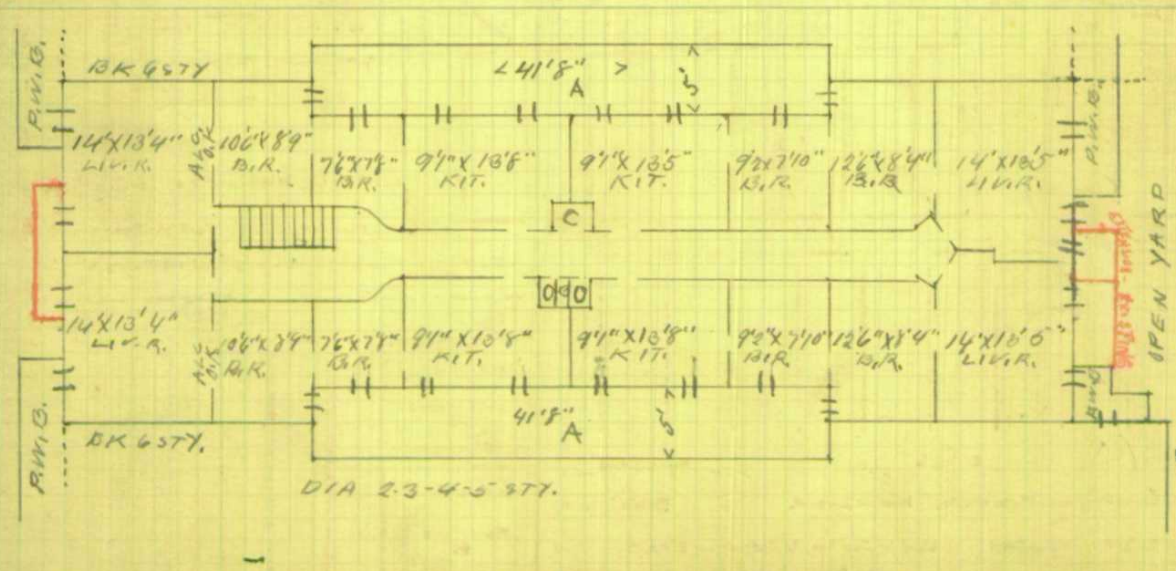 P.W.B.
BK 6 STY
< 41'8" >
A
5'
P.W.B.
14'X13'4"
LIV.R.
ALC
O.K
10'6"X8'9"
B.R.
7'6"X7'8"
B.R.
9'1"X13'8"
KIT.
9'1"X13'5"
KIT.
9'2X7'10"
B.R.
12'6"X8'4"
B.R
14'X13'5"
LIV.R.
C
OPEN YARD
14'X13'4"
LIV.R.
ALC
O.K
10'6"X8'9"
B.R.
7'6"X7'8"
B.R.
9'1"X13'8"
KIT.
9'1"X13'8"
KIT.
9'2"X7'10"
B.R.
12'6"X8'4"
B.R.
14'X13'5"
LIV.R.
P.W.B.
BK 6 STY.
41'8"
A
5'
DIA 2-3-4-5 STY.